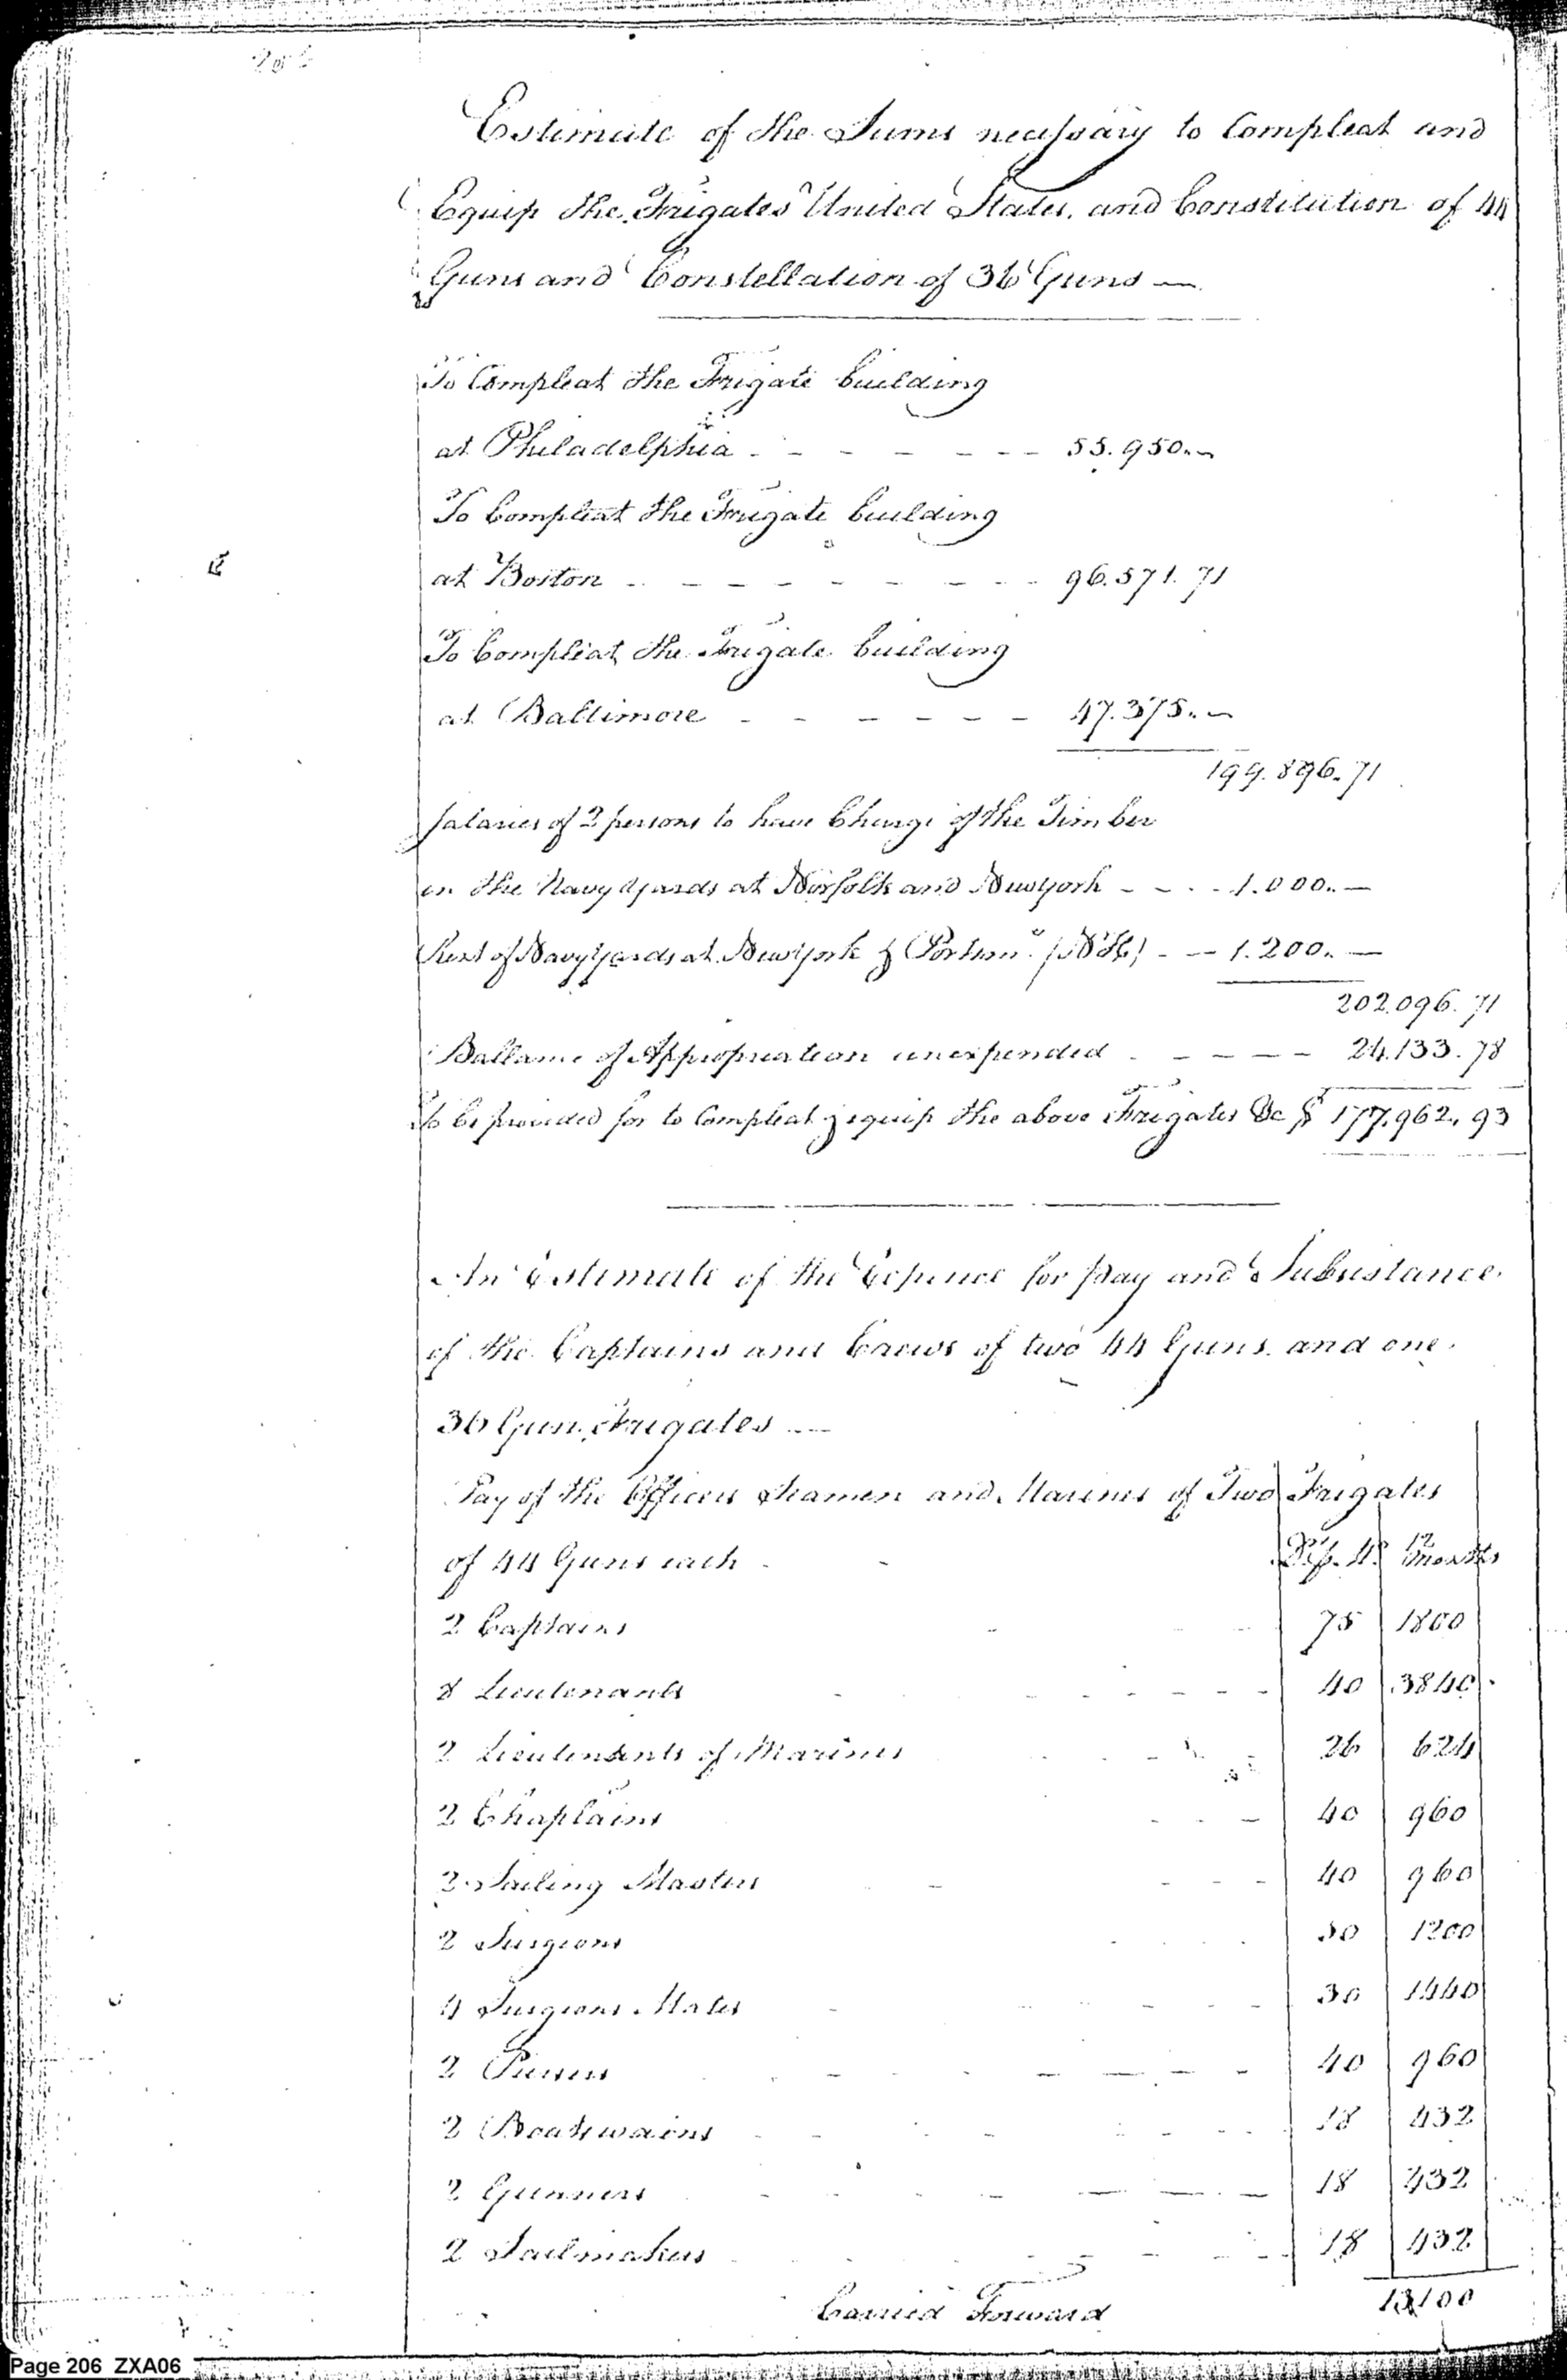 206
Estimate of the Sums necessary to Compleat and
Equip the Frigates United States, and Constitution of 44
Guns and Constellation of 36 Guns —
To Compleat the Frigate building
at Philadelphia - - - - - - - 55.950.. ~
To Compleat the Frigate building
at Boston - - - - - - - - - 96.571. 71
To Compleat the Frigate building
at Baltimore - - - - - - 47.375.. ~
199.896. 71
Salaries of 2 persons to have Charge of the Timber
in the Navy Yards at Norfolk and Newyork - - - - 1.000.. —
Rent of Navy Yards at Newyork & Portsmo. (NH) - — 1.200.. —
202.096. 71
Ballance of Appropriation unexpended - - - - - 24.133. 78
To be provided for to Compleat & equip the above Frigates &c $ 177,962.. 93
An Estimate of the Expence for pay and Subsistance
of the Captains and Crews of two 44 Guns and one
36 Gun Frigates —
Pay of the Officers Seamen and Marines of Two Frigates
of 44 Guns each - 12 Months
2 Captains 75 1800
8 Lieutenants 40 3840
2 Lieutenants of Marines 26 624
2 Chaplains 40 960
2 Sailing Masters 40 960
2 Surgeons 50 1200
4 Surgeons Mates 30 1440
2 Pursers 40 960
2 Boatswains 18 432
2 Gunners 18 432
2 Sailmakers 18 432
Carried Forward 13100
Page 206 ZXA06